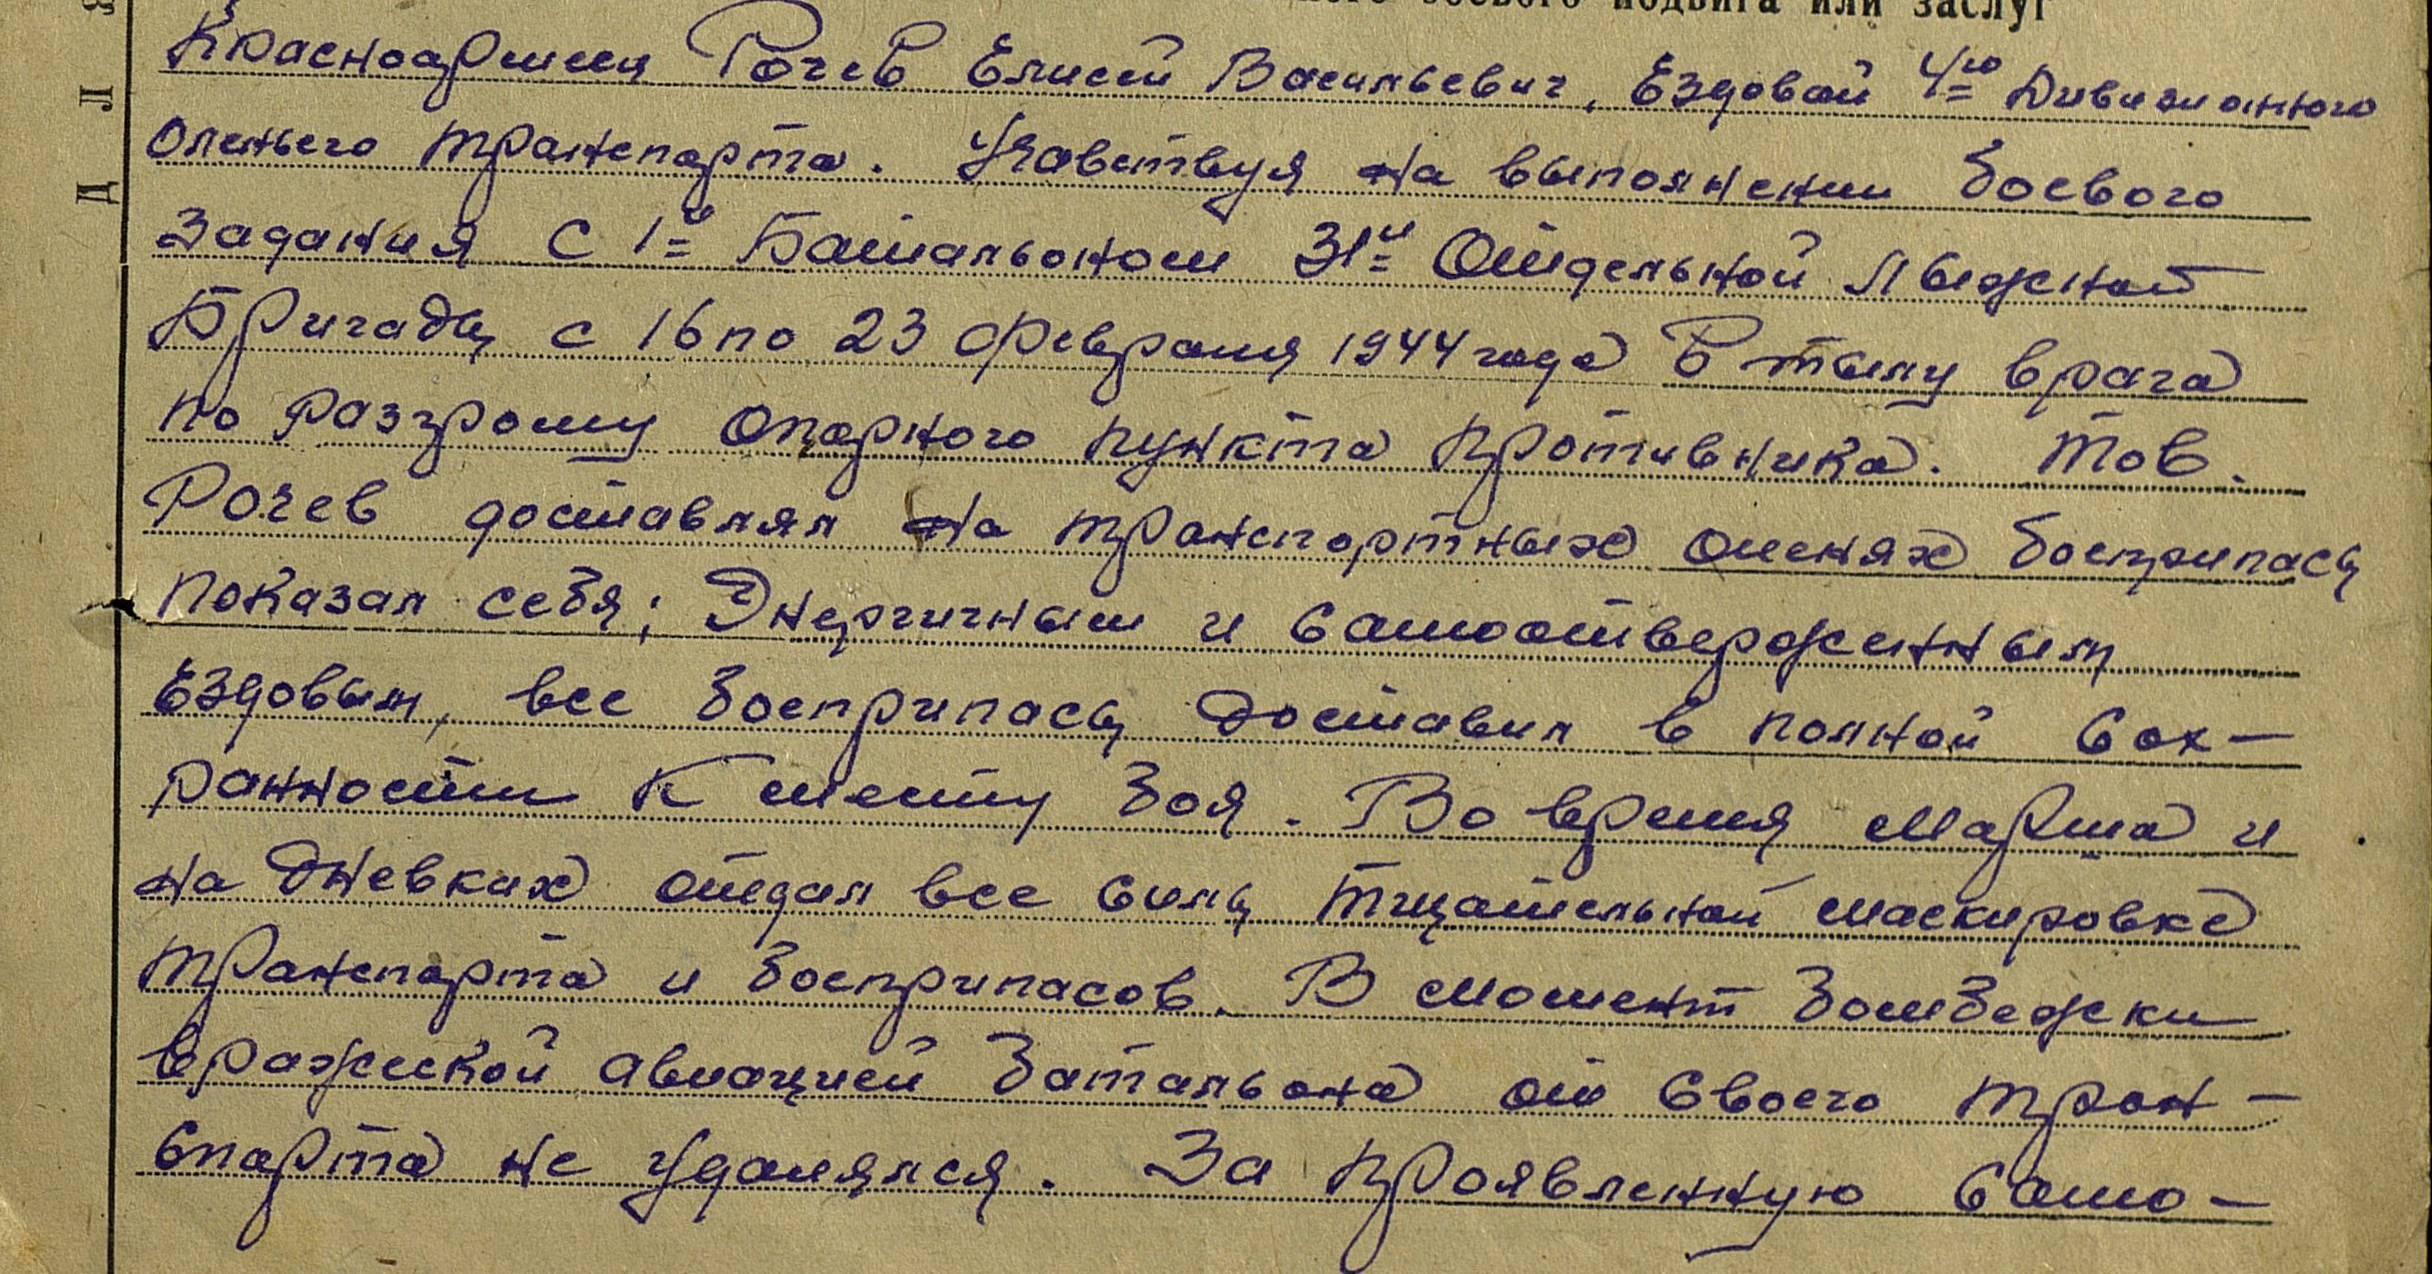 боевого подвига или заслуг
Д Л Я
Красноармеец Рочев Елисей Васильевич, Ездовой 4го Дивизионного
Оленьего транспорта. Учавствуя на выполнении боевого
Задания с 1й Батальоном 31й Отдельной Лыжной
Бригады с 16 по 23 февраля 1944 года В тылу врага
по разгрому опорного пункта противника. Тов.
Рочев доставлял на транспортных оленях боеприпасы
показал себя; Энергичным и самоотверженным
Ездовым, все боеприпасы доставил в полной сох-
ранности К месту боя. Во время марша и
на дневках отдал все силы тщательной маскировке
транспорта и боеприпасов. В момент бомбежки
вражеской авиацией батальона от своего тран-
спорта не удалялся. За проявленную само-